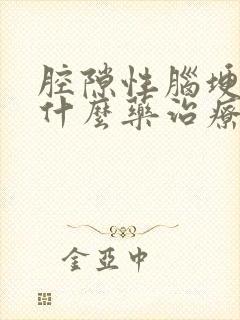 腔隙性腦埂
什麼藥治療
金亞中